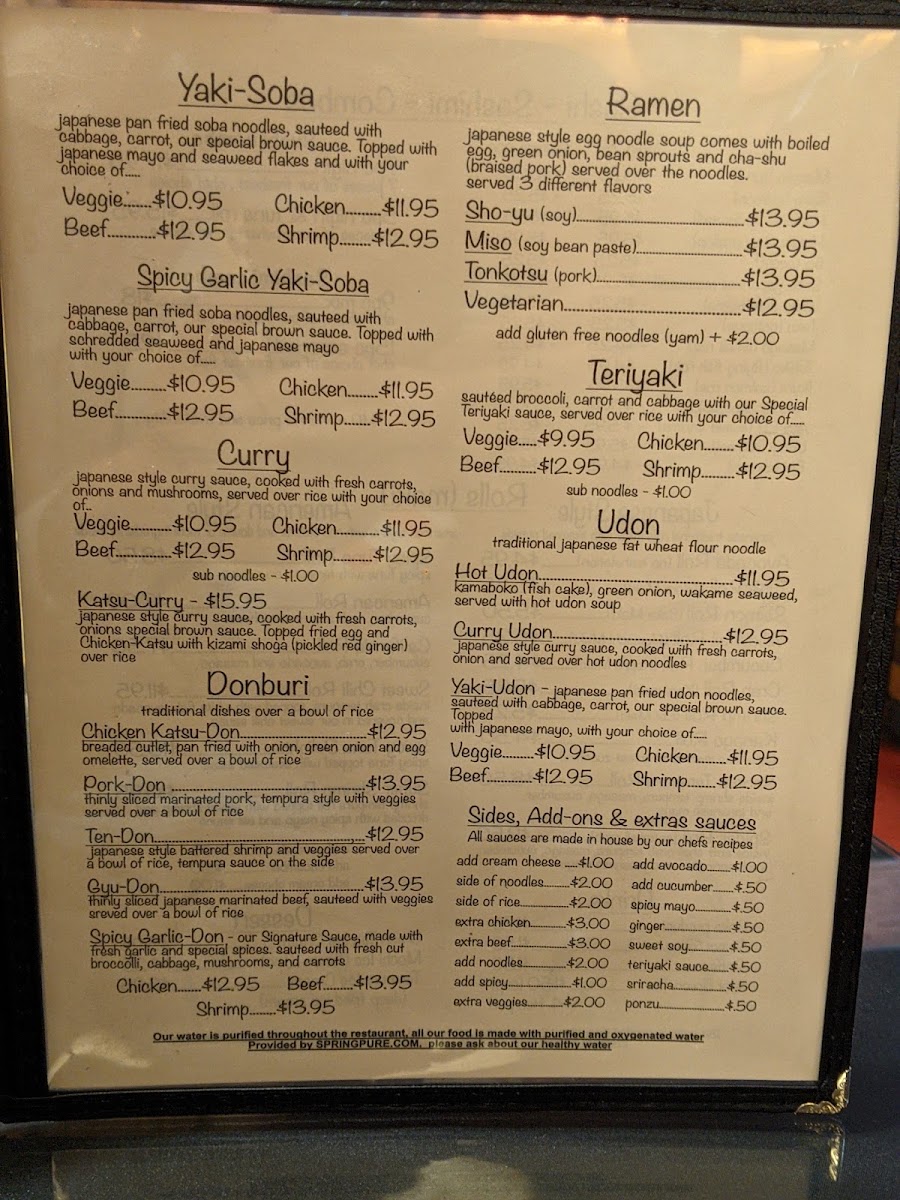 Yaki-Soba
japanese pan fried soba noodles, sauteed with
cabbage, carrot, our special brown sauce. Topped with
japanese mayo and seaweed flakes and with your
choice of.....
Veggie.......$10.95 Chicken........$11.95
Beef...........$12.95 Shrimp.......$12.95
Spicy Garlic Yaki-Soba
japanese pan fried soba noodles, sauteed with
cabbage, carrot, our special brown sauce. Topped with
schredded seaweed and japanese mayo
with your choice of.....
Veggie.........$10.95 Chicken.......$11.95
Beef............$12.95 Shrimp.......$12.95
Curry
japanese style curry sauce, cooked with fresh carrots,
onions and mushrooms, served over rice with your choice
of..
Veggie...........$10.95 Chicken.........$11.95
Beef..............$12.95 Shrimp.........$12.95
sub noodles - $1.00
Katsu-Curry - $15.95
japanese style curry sauce, cooked with fresh carrots,
onions special brown sauce. Topped fried egg and
Chicken-Katsu with kizami shoga (pickled red ginger)
over rice
Donburi
traditional dishes over a bowl of rice
Chicken Katsu-Don..........................$12.95
breaded cutlet, pan fried with onion, green onion and egg
omelette, served over a bowl of rice
Pork-Don ..........................................$13.95
thinly sliced marinated pork, tempura style with veggies
served over a bowl of rice
Ten-Don.............................................$12.95
japanese style battered shrimp and veggies served over
a bowl of rice, tempura sauce on the side
Gyu-Don............................................$13.95
thinly sliced japanese marinated beef, sauteed with veggies
sreved over a bowl of rice
Spicy Garlic-Don - our Signature Sauce, made with
fresh garlic and special spices. sauteed with fresh cut
broccolli, cabbage, mushrooms, and carrots
Chicken.......$12.95 Beef.......$13.95
Shrimp........$13.95
Ramen
japanese style egg noodle soup comes with boiled
egg, green onion, bean sprouts and cha-shu
(braised pork) served over the noodles.
served 3 different flavors
Sho-yu (soy)...................................$13.95
Miso (soy bean paste).....................$13.95
Tonkotsu (pork)..............................$13.95
Vegetarian......................................$12.95
add gluten free noodles (yam) + $2.00
Teriyaki
sautéed broccoli, carrot and cabbage with our Special
Teriyaki sauce, served over rice with your choice of.....
Veggie.....$9.95 Chicken........$10.95
Beef..........$12.95 Shrimp.........$12.95
sub noodles - $1.00
Udon
traditional japanese fat wheat flour noodle
Hot Udon..........................................$11.95
kamaboko (fish cake), green onion, wakame seaweed,
served with hot udon soup
Curry Udon....................................$12.95
japanese style curry sauce, cooked with fresh carrots,
onion and served over hot udon noodles
Yaki-Udon - japanese pan fried udon noodles,
sauteed with cabbage, carrot, our special brown sauce.
Topped
with japanese mayo, with your choice of.....
Veggie........$10.95 Chicken........$11.95
Beef..........$12.95 Shrimp........$12.95
Sides, Add-ons & extras sauces
All sauces are made in house by our chefs recipes
add cream cheese .....$1.00 add avocado........$1.00
side of noodles..........$2.00 add cucumber.......$.50
side of rice................$2.00 spicy mayo............$.50
extra chicken.............$3.00 ginger...................$.50
extra beef.................$3.00 sweet soy.............$.50
add noodles...............$2.00 teriyaki sauce.......$.50
add spicy...................$1.00 sriracha................$.50
extra veggies.............$2.00 ponzu....................$.50
Our water is purified throughout the restaurant, all our food is made with purified and oxygenated water
Provided by SPRINGPURE.COM. please ask about our healthy water